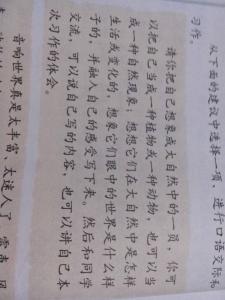 从下面的建议中选择一项，进行口语交际和
习作。
请你把自己想象成大自然中的一员，你可
以把自己当成一种植物或一种动物，也可以当
成一种自然现象。想想它们在大自然中是怎样
生活或变化的，想象它们眼中的世界是什么样
子的，并融入自己的感受写下来。然后和同学
交流，可以说自己写的内容，也可以讲自己本
次习作的体会。
音响世界真是太丰富、太迷人了，雷声、风